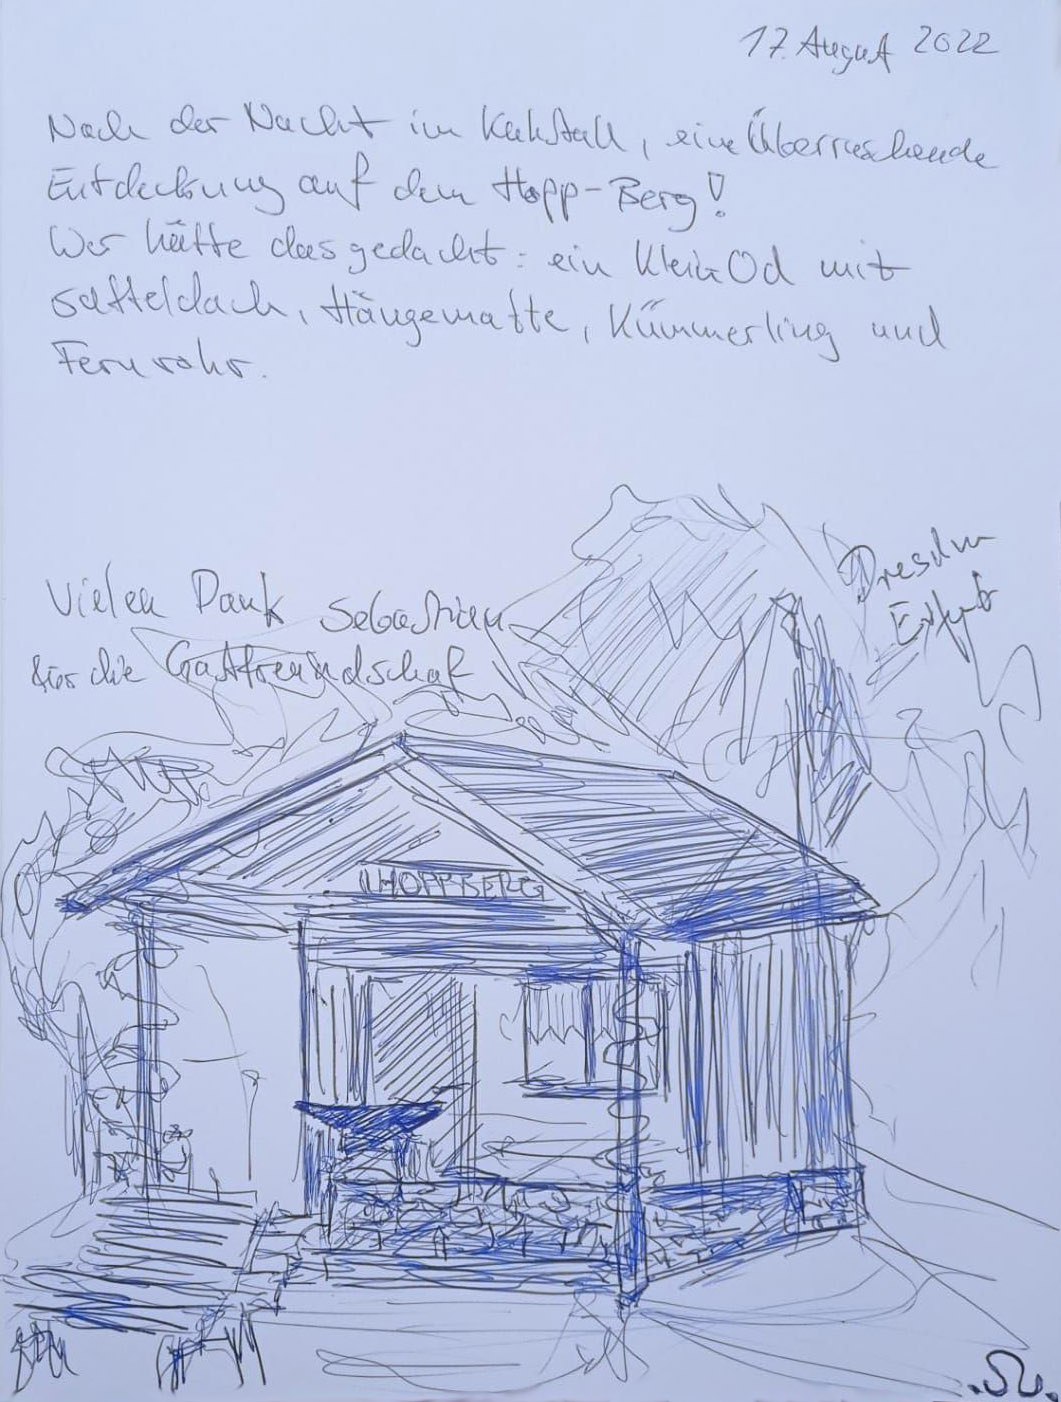 17. August 2022
Nach der Nacht im Kuhstall, eine Überraschende
Entdeckung auf dem Hopp-Berg!
Wer hätte das gedacht: ein KleinOd mit
Satteldach, Hängematte, Kümmerling und
Fernrohr.
Vielen Dank Sebastian
für die Gastfreundschaft
Dresden
Erfurt
HOPPBERG